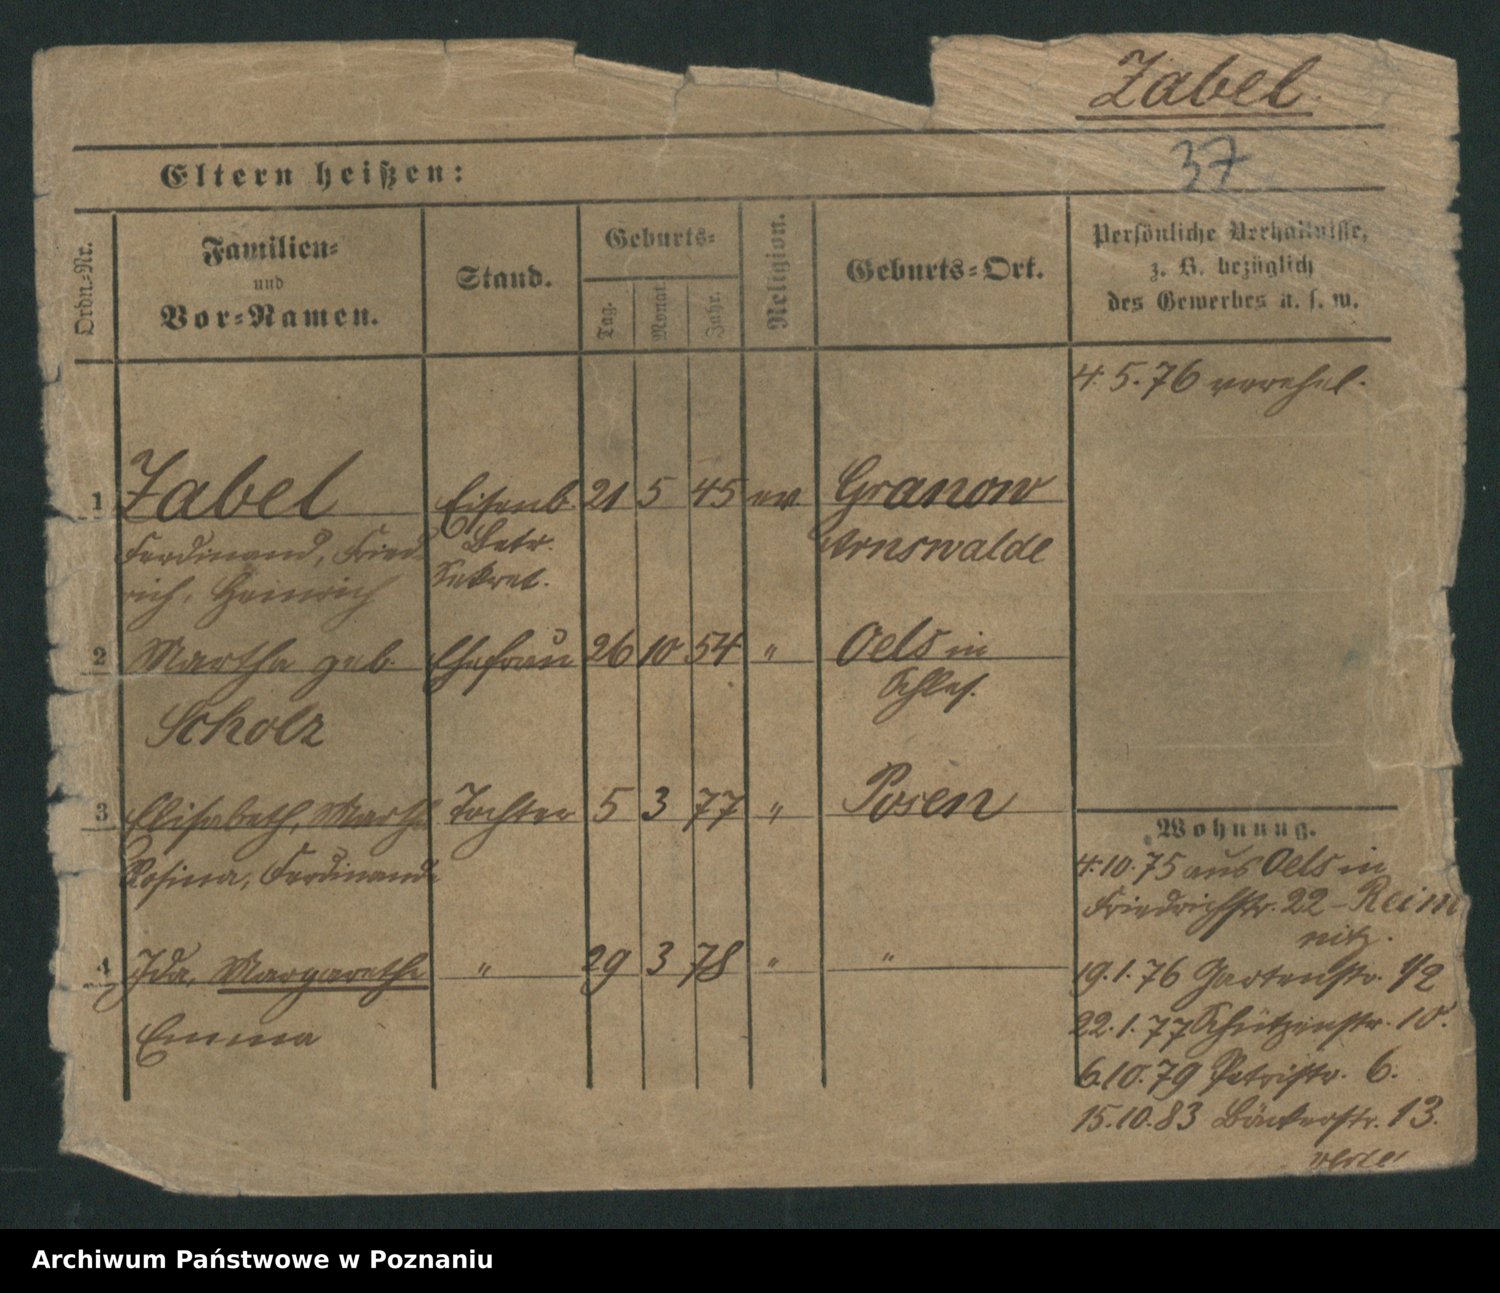 Zabel.
37
Eltern heißen:
Ordn.-Nr.
Familien-
und
Vor-Namen.
Stand.
Geburts-
Tag.
Monat.
Jahr.
Religion.
Geburts-Ort.
Persönliche Verhältnisse,
z. B. bezüglich
des Gewerbes u. s. w.
4. 5. 76 verehel.
1 Zabel Eisenb. 21 5 45 ev Granow
Ferdinand, Fried Betr. Arnswalde
rich, Heinrich Sekret.
2 Martha geb. Ehefrau 26 10 54 " Oels in
Scholz Schles.
3 Elisabeth, Martha Tochter 5 3 77 " Posen
Rosina, Ferdinande
4 Ida, Margarethe " 29 3 78 " "
Emma
Wohnung.
4. 10. 75 aus Oels in
Friedrichstr. 22 - Reim
nitz.
19. 1. 76 Gartenstr. 1/2
22. 1. 77 Schützenstr. 10.
6. 10. 79 Petristr. 6.
15. 10. 83 Bäckerstr. 13.
Archiwum Państwowe w Poznaniu